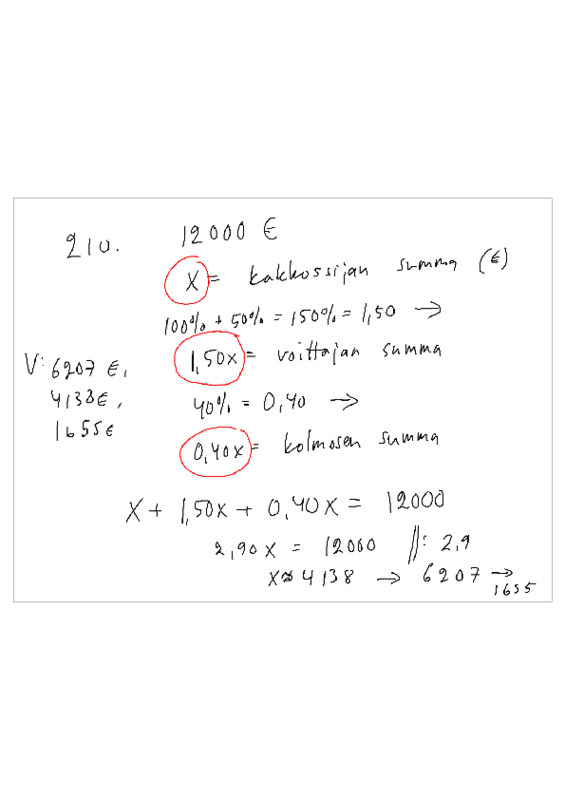 210.
12000 €
x = kakkossijan summa (€)
100% + 50% = 150% = 1,50 →
1,50x = voittajan summa
40% = 0,40 →
0,40x = kolmosen summa
V: 6207 €,
4138 €,
1655 €
x + 1,50x + 0,40x = 12000
2,90x = 12000 ||: 2,9
x ≈ 4138 → 6207 → 1655